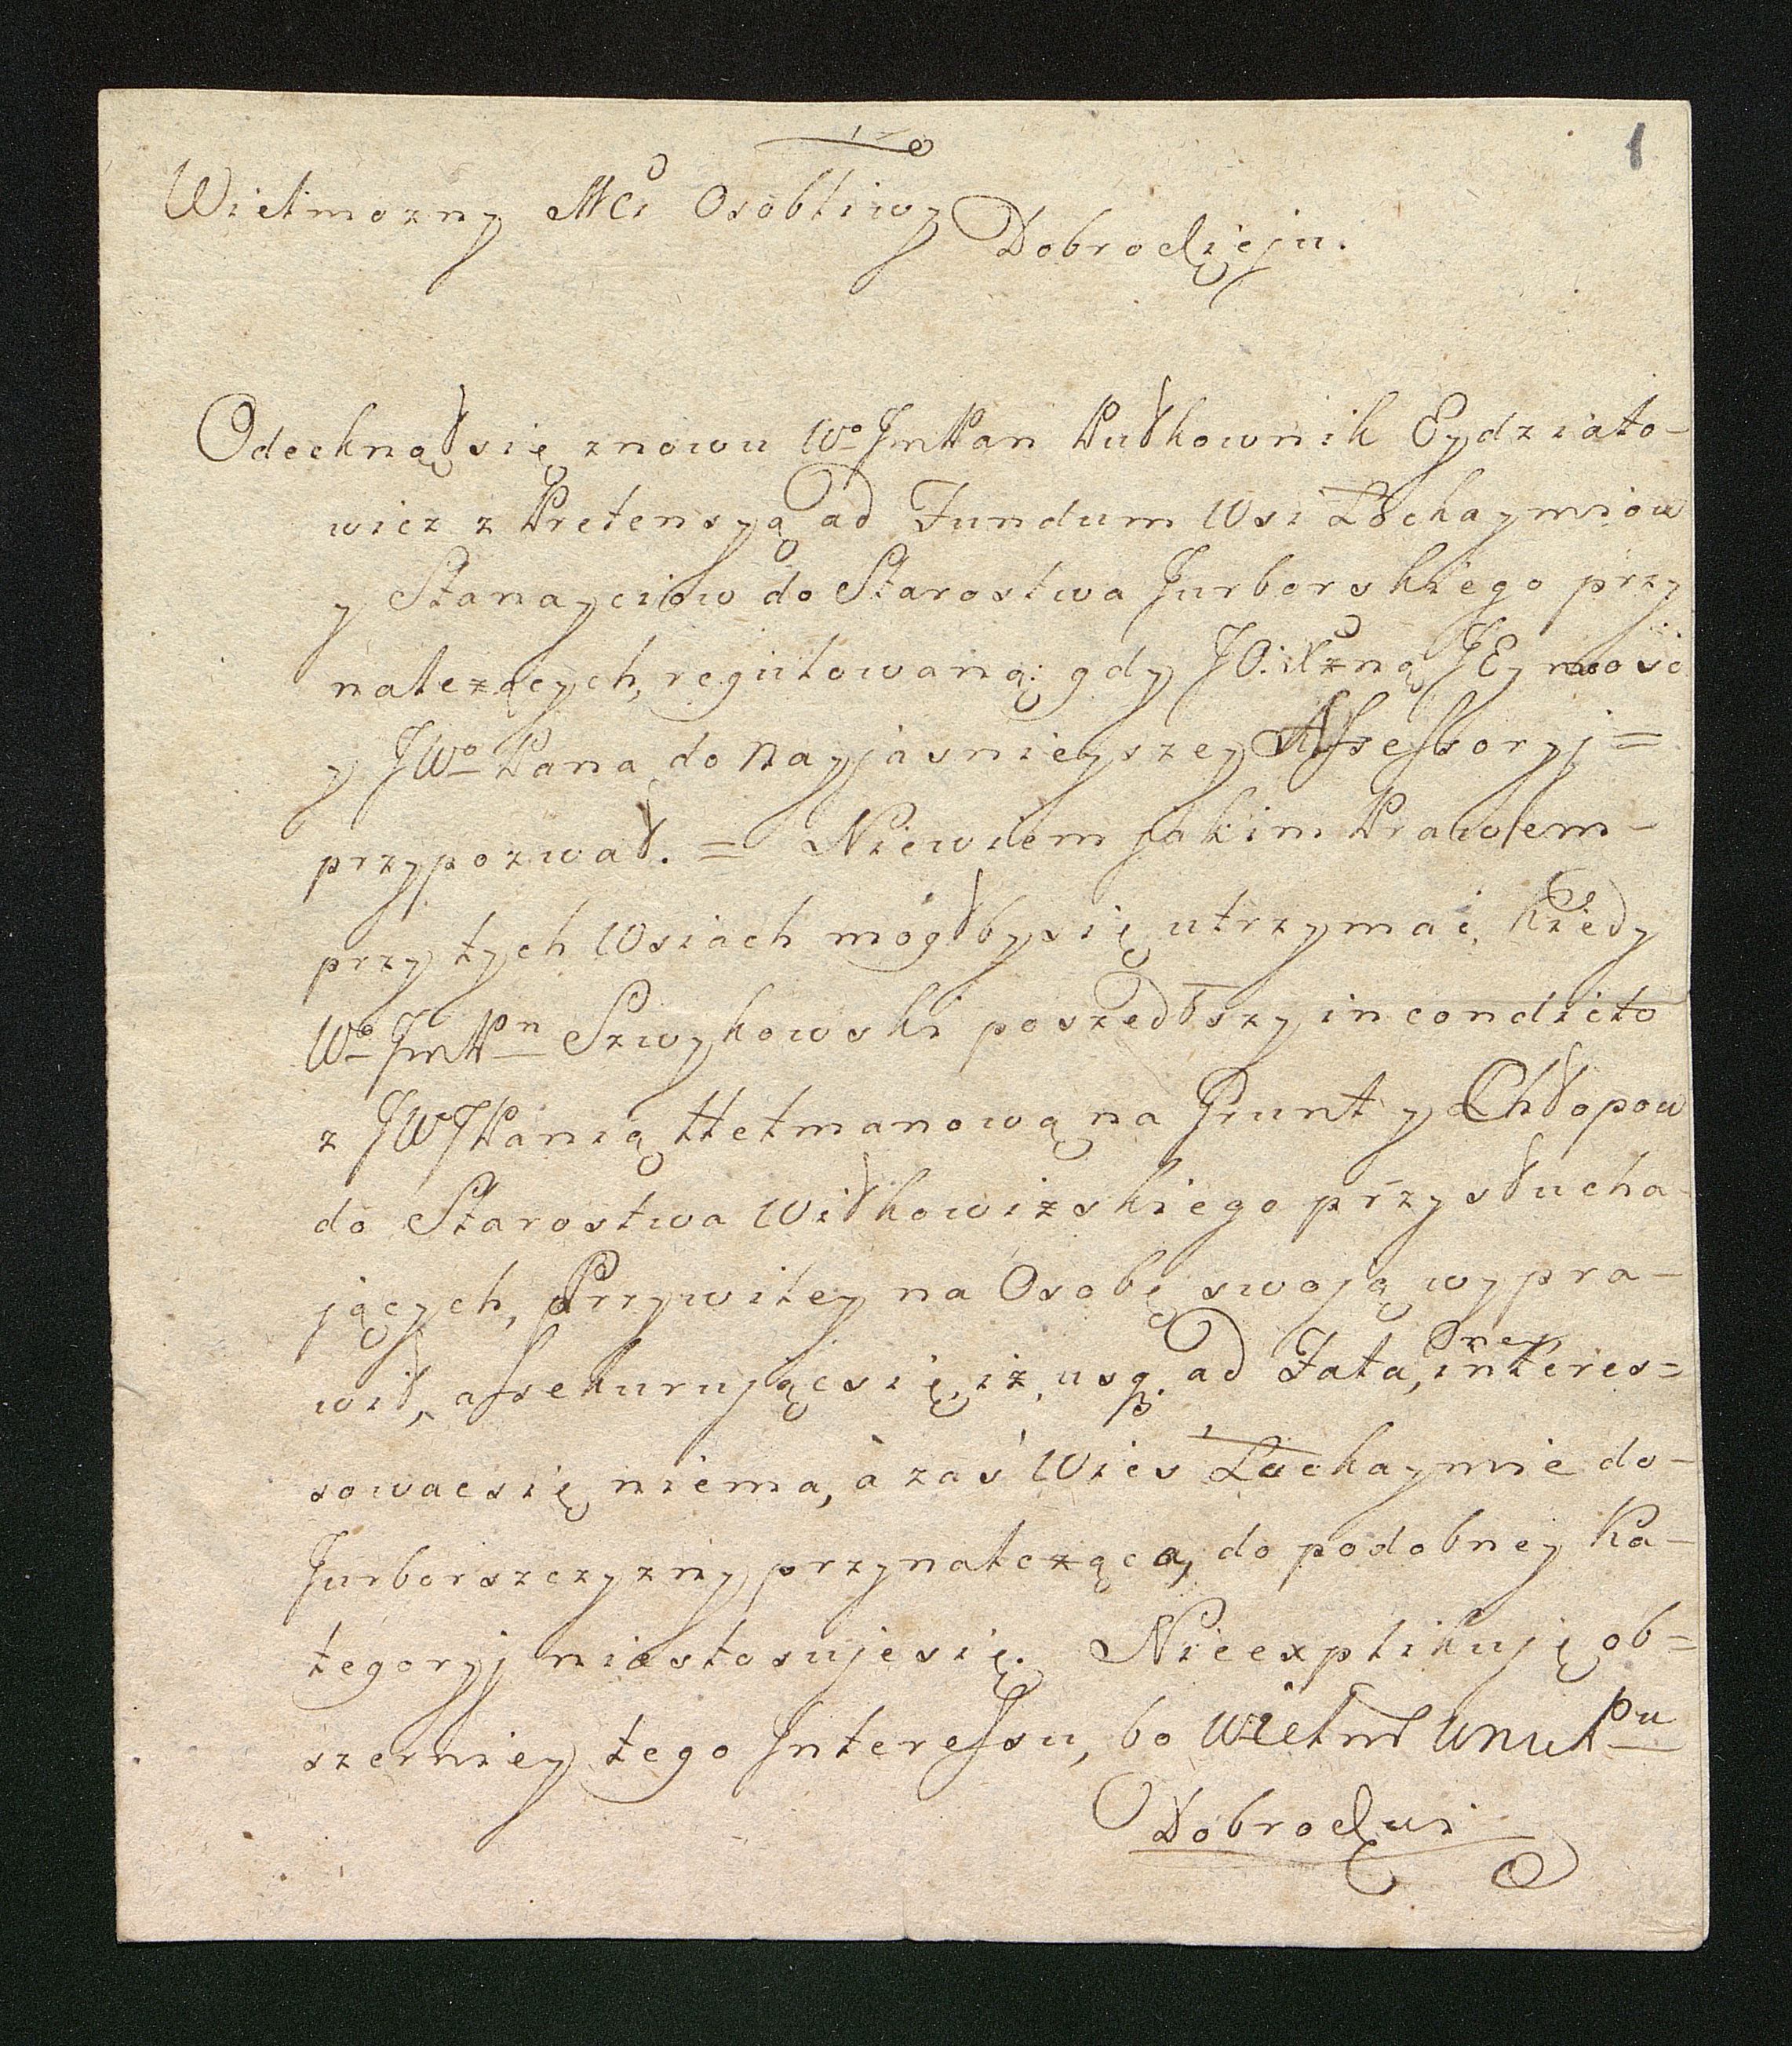 1
Wielmozny Mci Osobliwy
Dobrodzieju.
Odechnął się znowu Wo JmPan Pułkownik Eydziato-
wicz z Pretensyą ad Fundum Wsi Łochaymiow
y Stanayciow do Starostwa Jurborskiego przy
należących, regulowaną: gdy JO: Xzną JEymość
y JWo Pana do Nayjasnieyszey Assessoryj =
przypozwał. = Niewiem jakim Prawem -
przy tych Wsiach mógłby się utrzymać, kiedy
Wo JmPn Szwykowski poszedłszy in condicto
z JWJPanią Hetmanową na Grunt y Chłopow
do Starostwa Wiłkowizskiego przysłucha
jących, Przywiley na Osobę swoją wypra-
wił, assekurując się, iż usq. ad Fata, interes=
sowac się niema, à zaś Wies Łochaymie do-
Jurborszczyzny przynależąca, do podobney Ka-
tegoryj niestosuje się. Nieexplikuję ob=
szerniey tego Interessu, bo Wielm Unul Pu
Dobrodzui